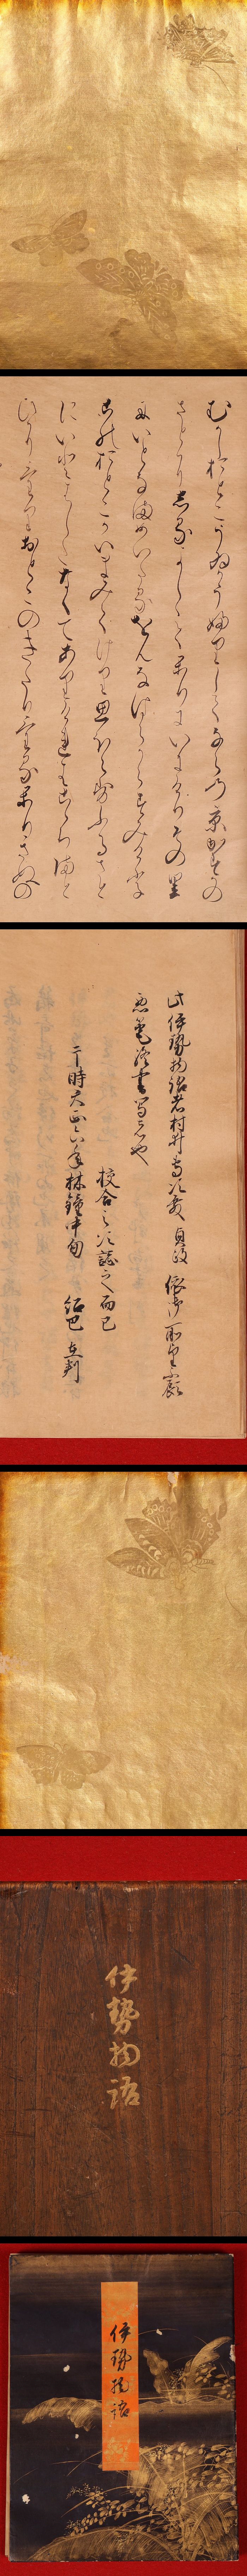 むかしおとこうゐかうふりしてならの京かすかの
さとにしるよしゝてかりにいにけりその里
にいとなまめいたるをんなはらからすみけり
このおとこかいまみてけり思ほえすふるさと
にいとはしたなくてありけれはこゝちまと
ひにけりおとこのきたりけるかりきぬの
此伊勢物語者村井 依御所望
悪筆 書写
校合之次誌之而已
于時天正六年林鐘中旬 紹巴 在判
伊勢物語
伊勢物語